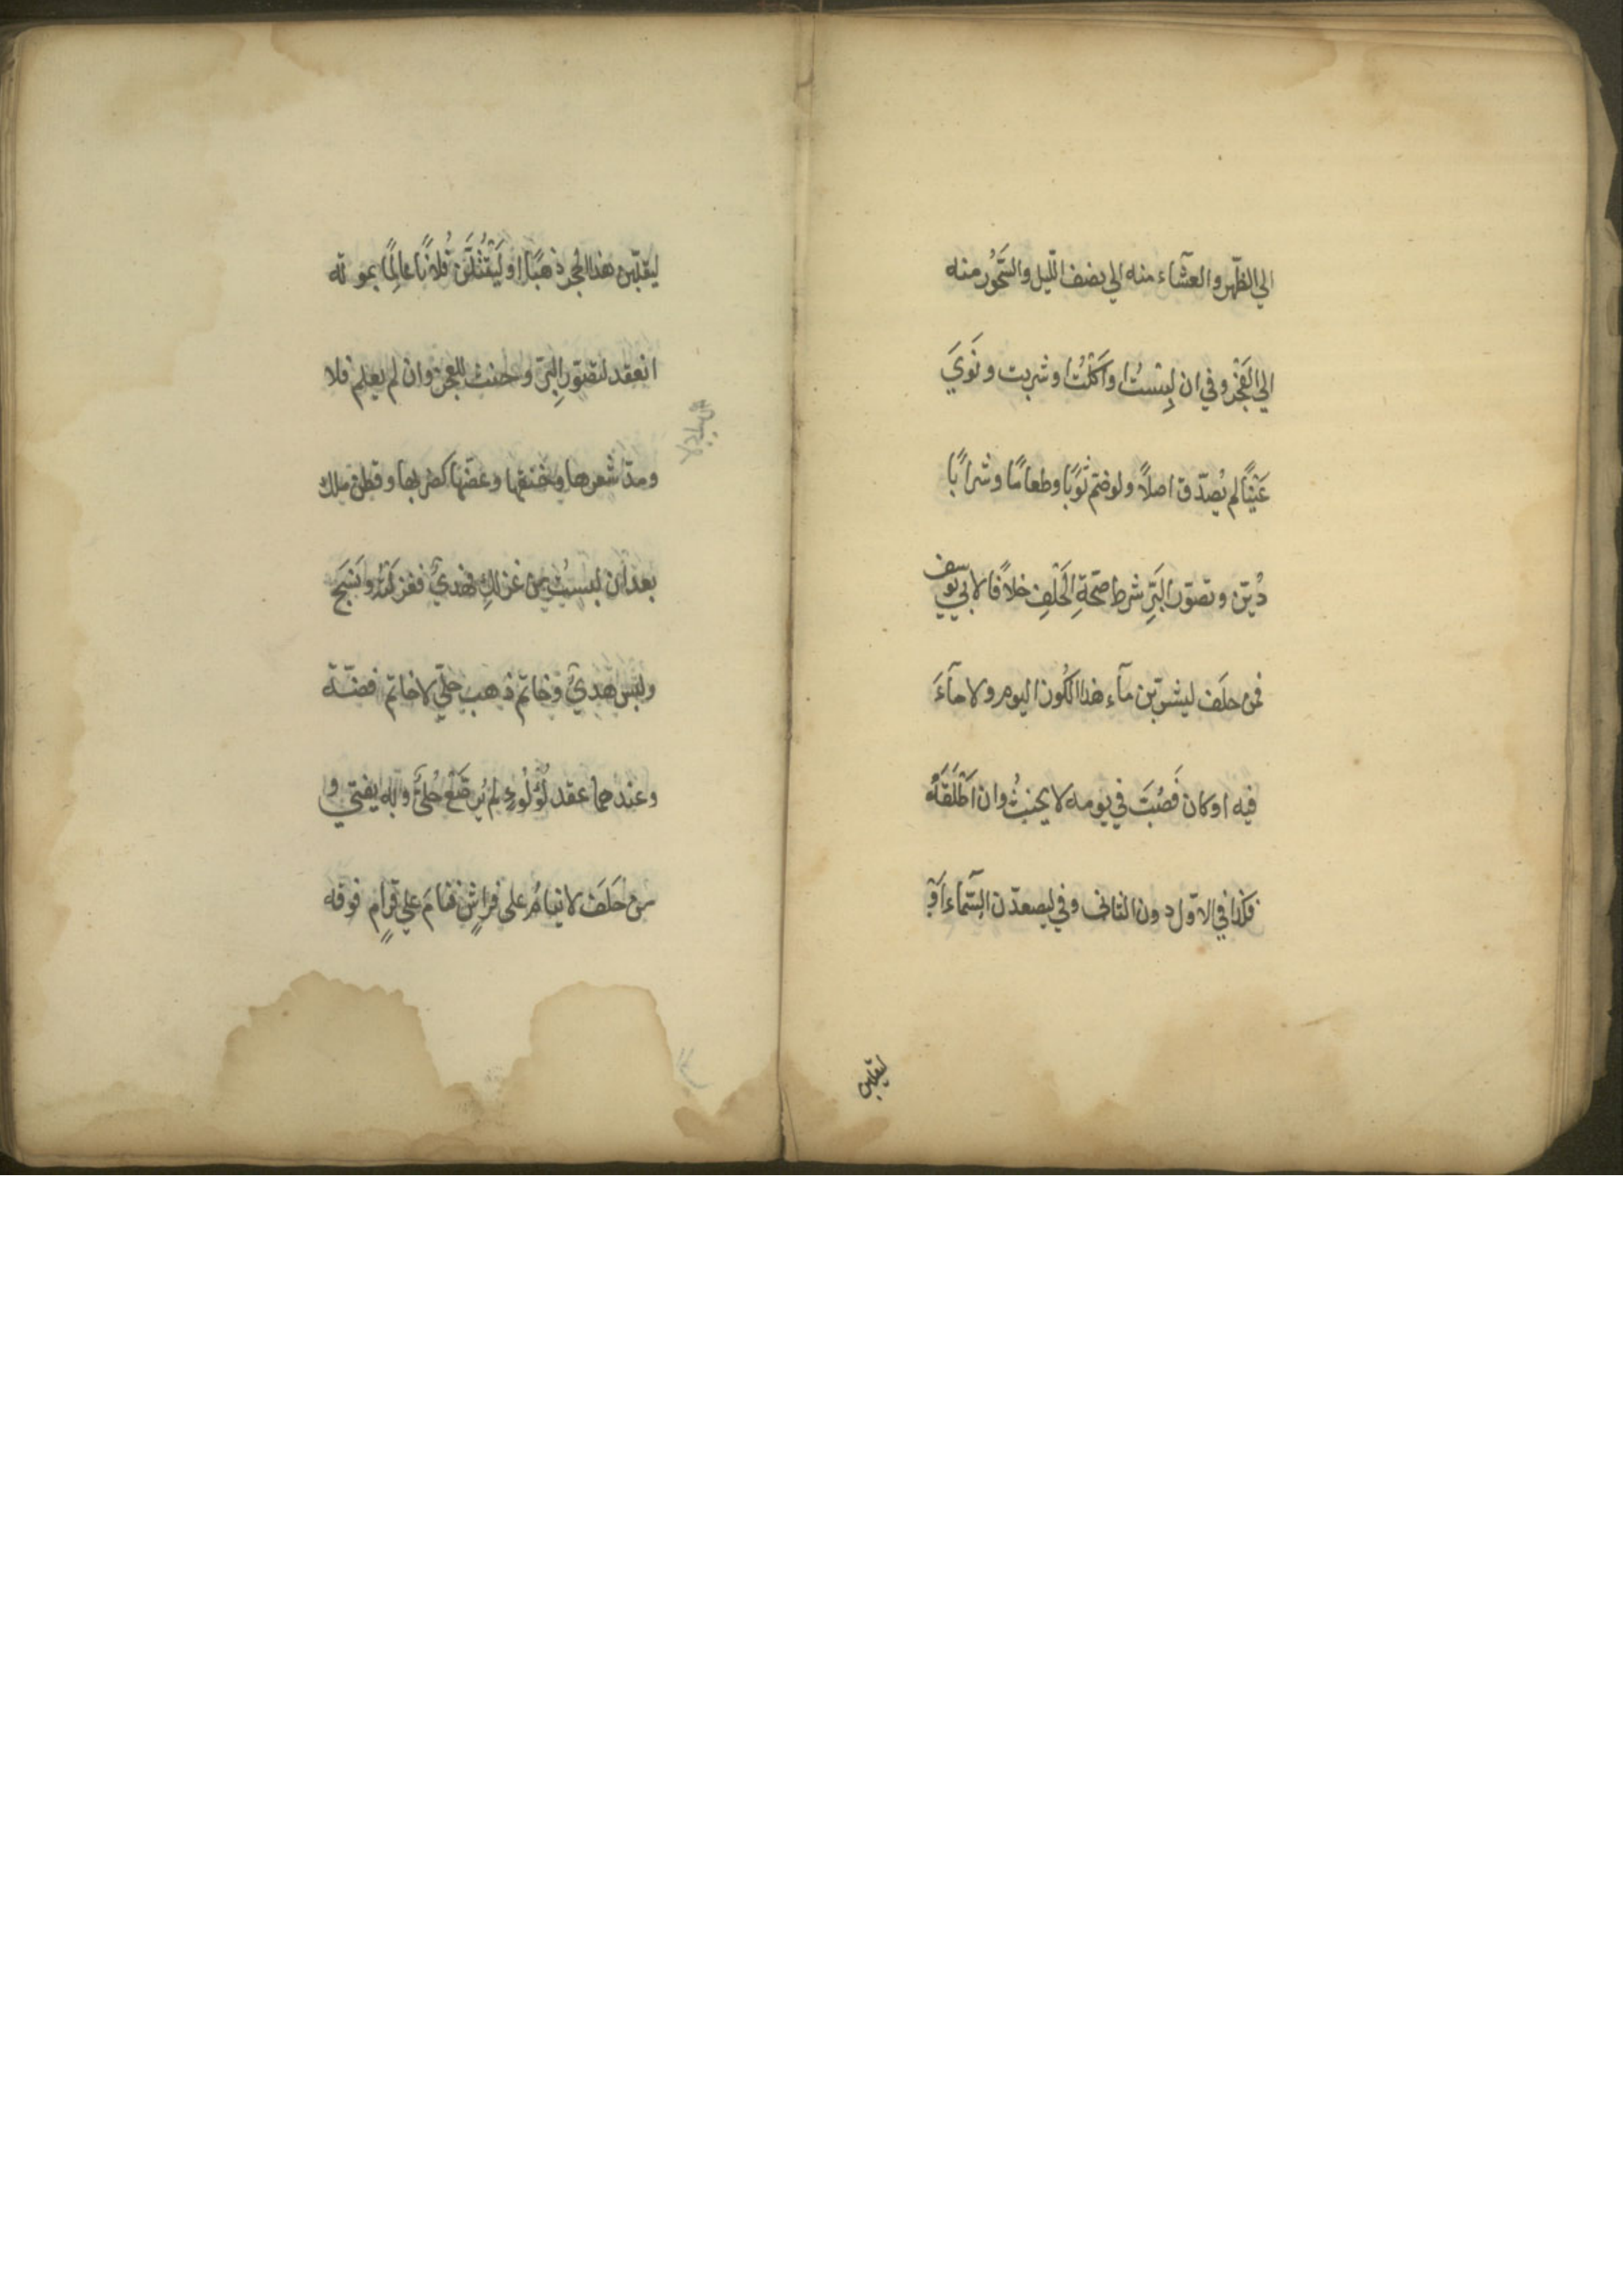 الي الظّهر والعشآء منه الي نصف اللّيل والسّحُور منه
الي الفَجْر وفي ان لبِسْتُ او اَكَلْتُ او شربت ونَوَيَ
عَيْنًا لم يُصدّق اصلاً ولو ضمّ ثَوْبًا وطعامًا وشرابًا
دُيّن وتصوّر البَرِّ شرط صحّةِ الحَلْفِ خلاًفا لابي يوسف
فمن حلَف ليشربّن مآء هذا الكُوز اليوم ولا مآءَ
فيه او كان فَصُبَّ في يومه لا يحنثُ وان اَطْلَقَهُ
فكذا في الاوّل دون الثاني وفي ليصعدّن السّمآء اَوْ
ليقلبن
ليقلبّن هذا الحجر ذهبًا او لَيَقْتُلَّن فُلانًا عالمًا بموته
انعقد لتصوّر البِرّ وحنث للعجز وان لم يعلم فلا
ومدّ شعرها وخنقها وعضّها كضربها وقطن ملك
بعد ان لبستُ من غزلكِ فهديٌ فغزلَتْهُ ونَسَجَ
ولبس هديٌ وخاتم ذهب حليّ لا خاتم فضّة
وعندهما عقد لُؤلُؤٍ لم يُرصَّعْ حُليٌّ وبه يفتي و
من حَلَفَ لا ينامُ علي فراشٍ فنامَ علي قرامٍ فوقه